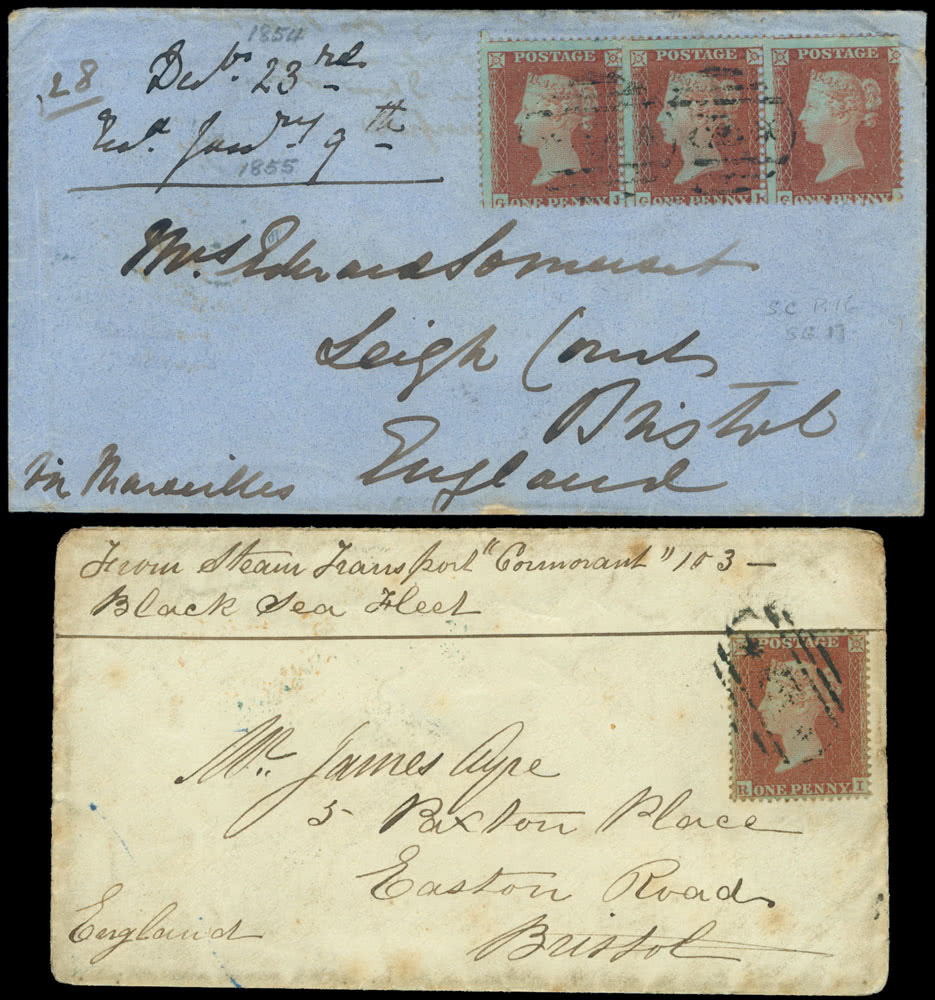 1854
28
Decbr 23rd
Recd Jany 9th
1855
POSTAGE POSTAGE POSTAGE
G ONE PENNY J G ONE PENNY K G ONE PENNY
Mrs Edward Somerset
Leigh Court
Bristol
England
via Marseilles
From Steam Transport "Cormorant" 103 —
Black Sea Fleet
POSTAGE
R ONE PENNY I
Mr. James Ayre
5 Paxton Place
Easton Road
Bristol
England